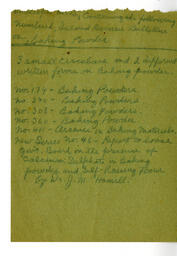 Containing the following
numbered Inland Revenue Bulletins
on Baking Powder
3 small circulars and 2 different
written forms on Baking powder.
no. 174 - Baking Powders
no. 240 - Baking Powders
no. 303 - Baking Powders
no. 360 - Baking Powder
no. 411 - Arsenic in Baking Materials
New Series No. 46 - Report to Local
Gov't. Board on the presence of
"Calcium Sulphate in Baking
powder and Self-Raising Flour
by Dr. J. M. Hamill.